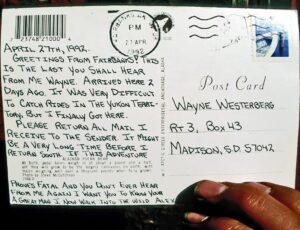 APRIL 27TH, 1992.
GREETINGS FROM FAIRBANKS! THIS
IS THE LAST YOU SHALL HEAR
FROM ME WAYNE. ARRIVED HERE 2
DAYS AGO. IT WAS VERY DIFFICULT
TO CATCH RIDES IN THE YUKON TERRI-
TORY. BUT I FINALLY GOT HERE.
PLEASE RETURN ALL MAIL I
RECEIVE TO THE SENDER. IT MIGHT
BE A VERY LONG TIME BEFORE I
RETURN SOUTH. IF THIS ADVENTURE
ALASKAN POLAR BEAR
PROVES FATAL AND YOU DON'T EVER HEAR
FROM ME AGAIN I WANT YOU TO KNOW YOUR
A GREAT MAN. I NOW WALK INTO THE WILD. ALEX
PM
27 APR
1992
Post Card
WAYNE WESTERBERG
RT 3, BOX 43
MADISON, SD 57042